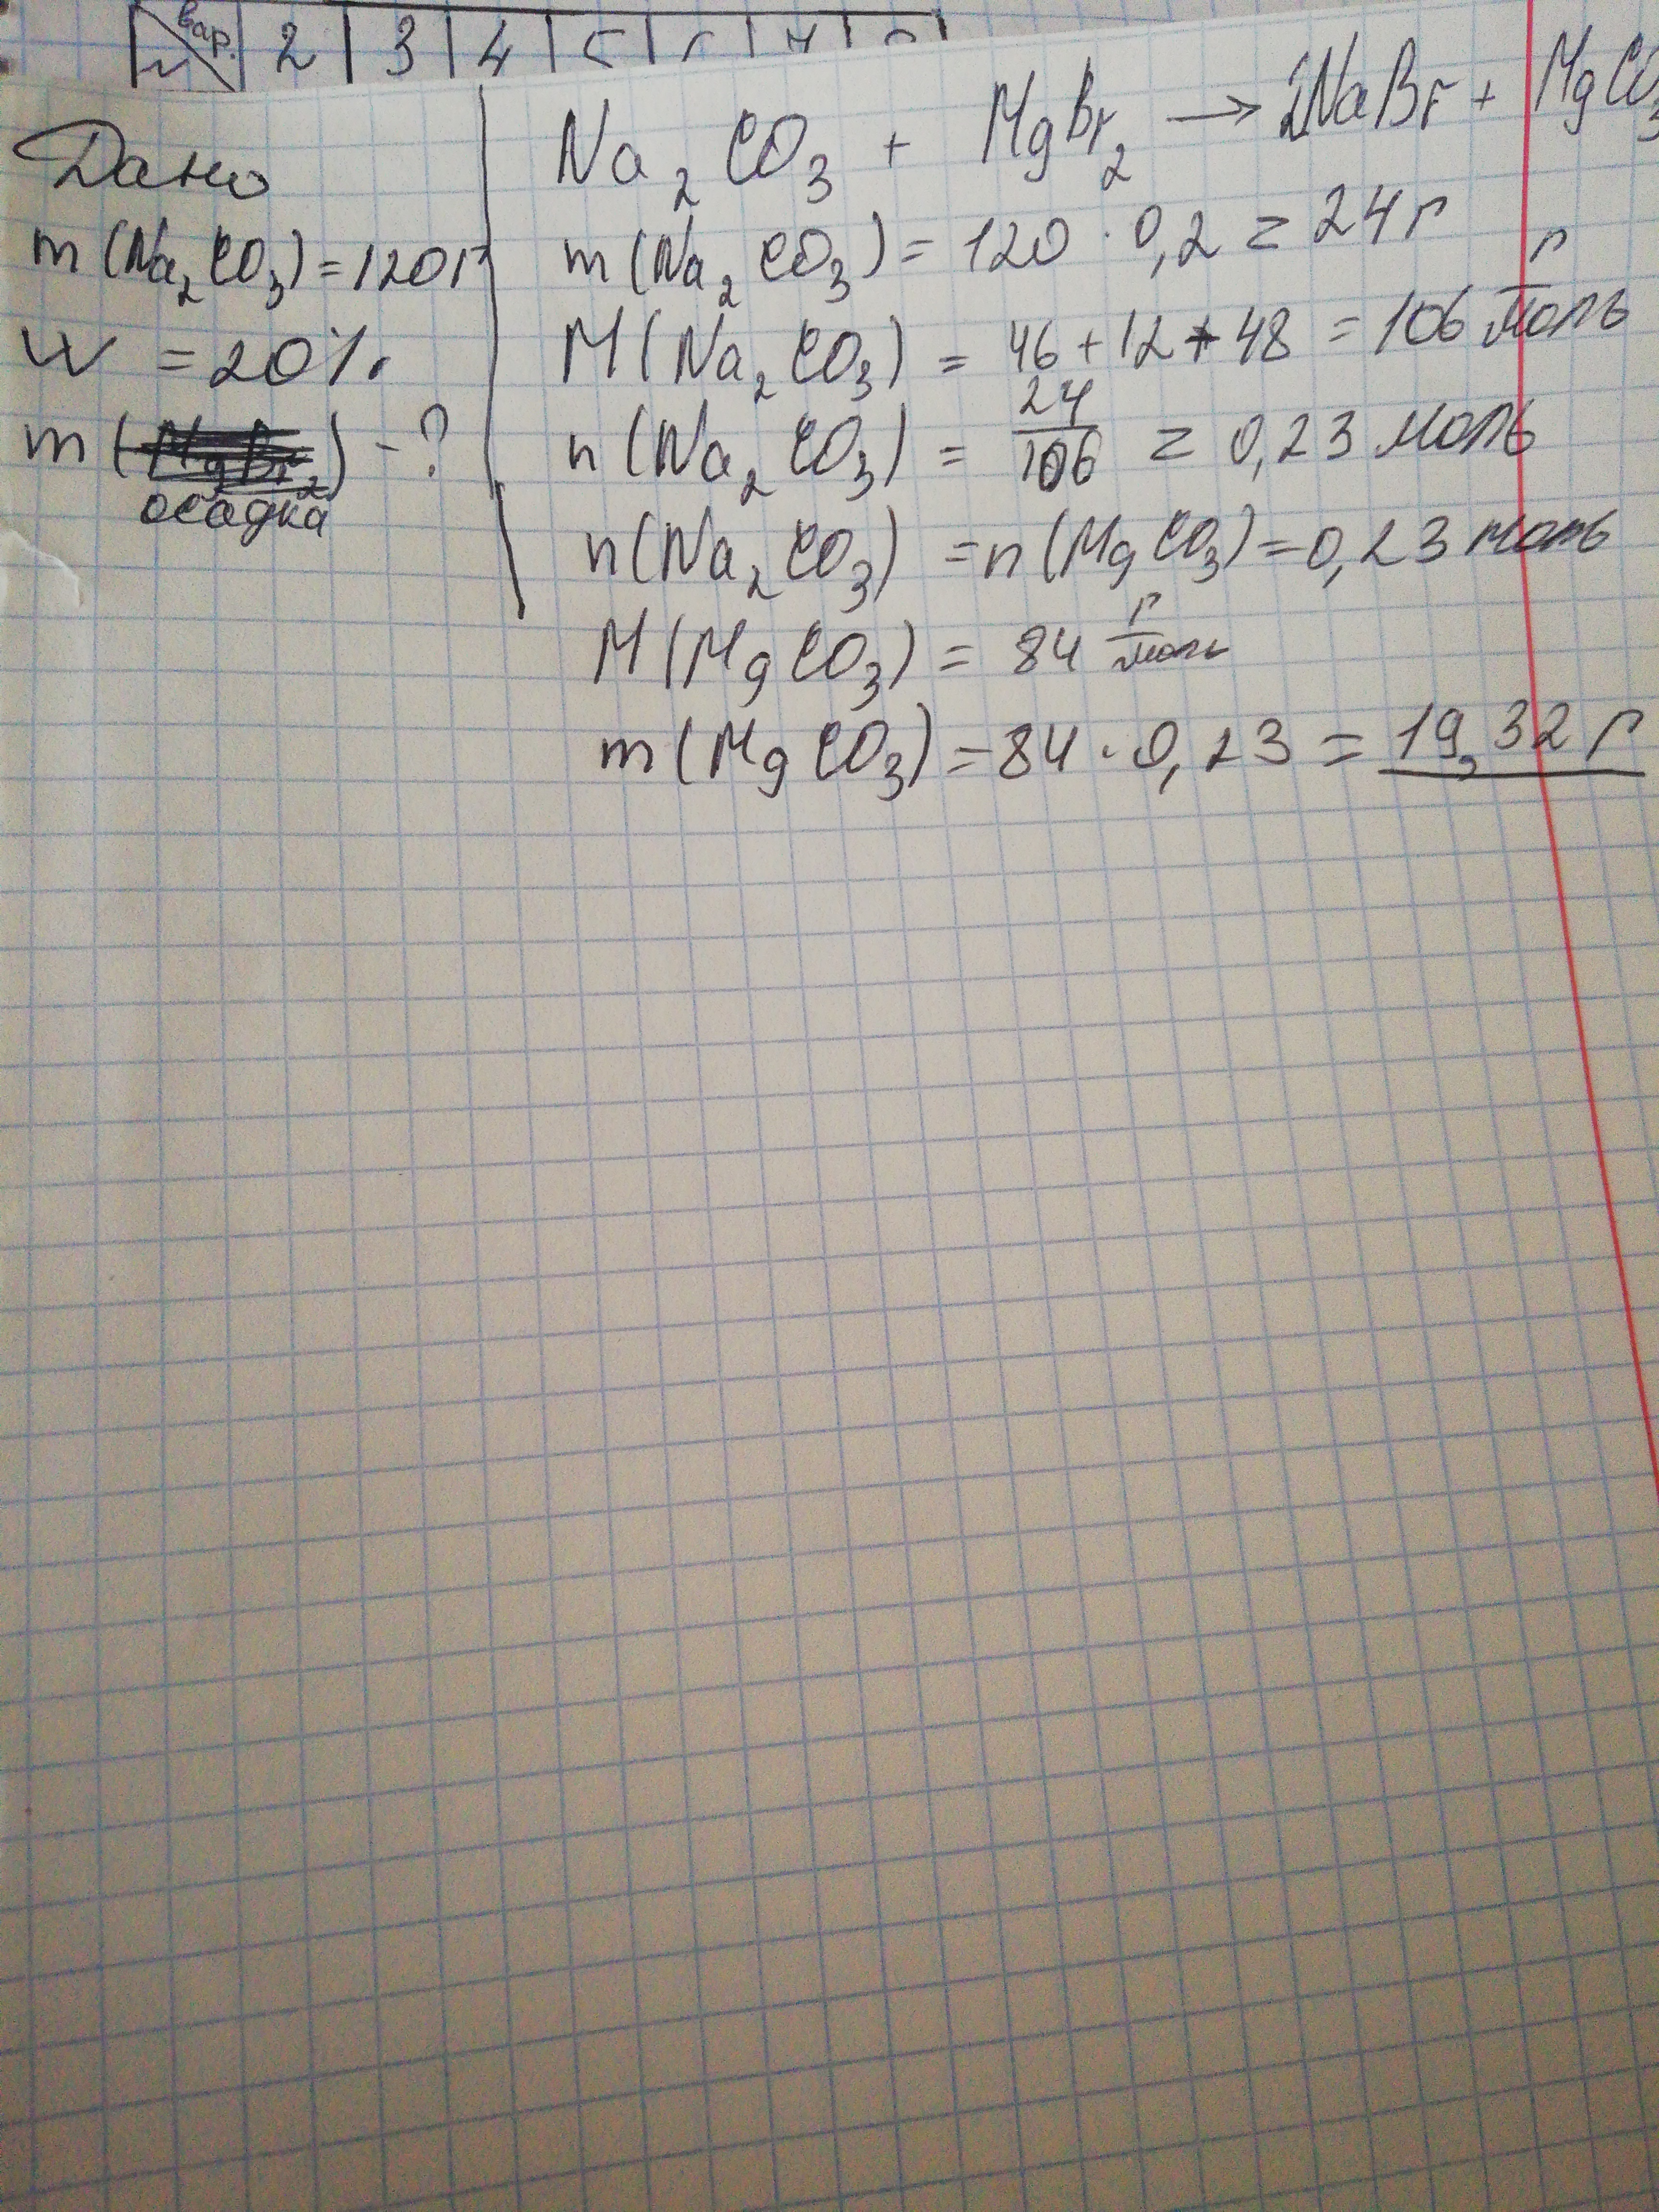 вар. 2 3 4
Дано
m(Na₂CO₃)=120г
W = 20%
m(осадка) - ?
Na₂CO₃ + MgBr₂ → 2NaBr + MgCO₃
m(Na₂CO₃) = 120 · 0,2 = 24 г
M(Na₂CO₃) = 46+12+48 = 106 г/моль
n(Na₂CO₃) = 24/106 = 0,23 моль
n(Na₂CO₃) = n(MgCO₃) = 0,23 моль
M(MgCO₃) = 84 г/моль
m(MgCO₃) = 84 · 0,23 = 19,32 г